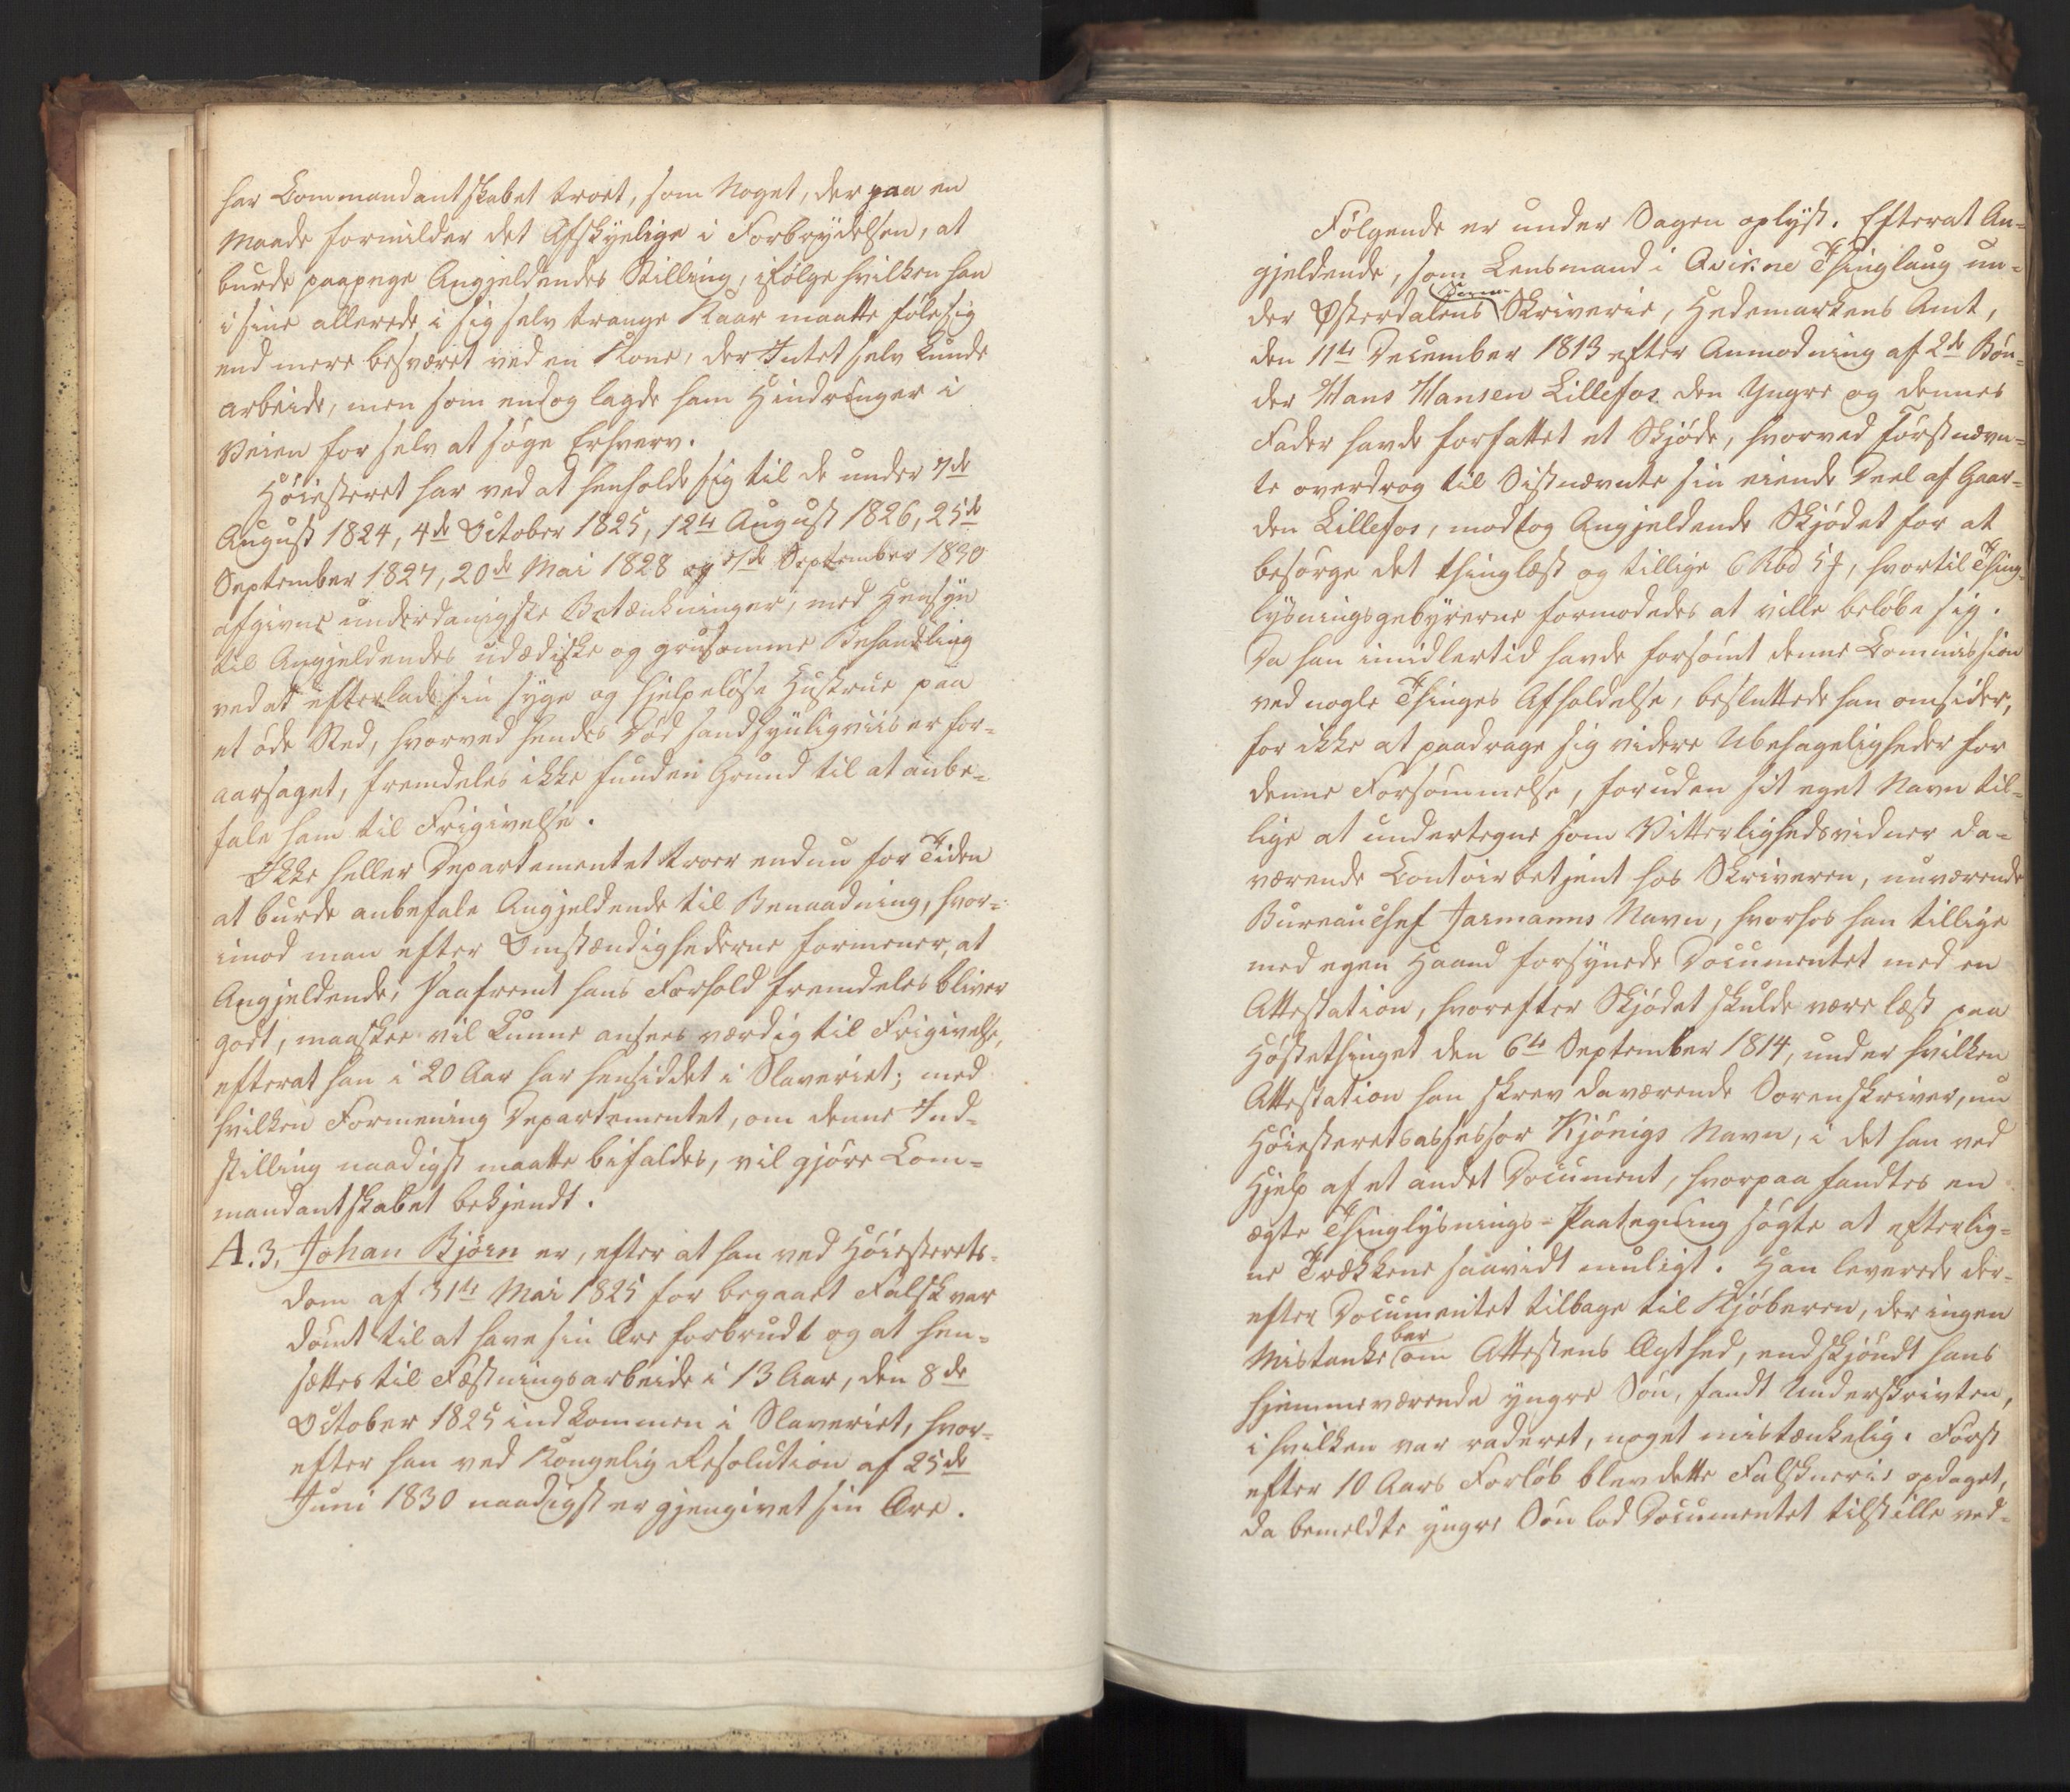 har Commandantskabet troet, som Noget, der paa en
Maade formilder det Afskyelige i Forbrydelsen, at
burde paapege Angjeldendes Stilling, ifølge hvilken han
i sine allerede i sig selv trange Kaar maatte føle sig
end mere besværet ved en Kone, der Intet selv kunde
arbeide, men som endog lagde ham Hindringer i
Veien for selv at søge Erhverv.
Høiesteret har ved at henholde sig til de under 7de
August 1824, 4de October 1825, 12te August 1826, 25de
September 1827, 20de Mai 1828 og 7de September 1830
afgivne underdanigste Betænkninger, med Hensyn
til Angjeldendes udædiske og grusomme Behandling
ved at efterlade sin syge og hjelpeløse Hustrue paa
et øde Sted, hvorved hendes Død sandsynligviis er for-
aarsaget, fremdeles ikke funden Grund til at anbe-
fale ham til Frigivelse.
Ikke heller Departementet troer endnu for Tiden
at burde anbefale Angjeldende til Benaadning, hvor-
imod man efter Omstændighederne formener, at
Angjeldende, saafremt hans Forhold fremdeles bliver
godt, maaskee vil kunne ansees værdig til Frigivelse,
efterat han i 20 Aar har hensiddet i Slaveriet; med
hvilken Formening Departementet, om denne Ind-
stilling naadigst maatte bifaldes, vil gjøre Com-
mandantskabet bekjendt.
A.3. Johan Bjørn er, efter at han ved Høiesterets-
dom af 31te Mai 1825 for begaaet Falsk var
dømt til at have sin Ære forbrudt og at hen-
sættes til Fæstningsarbeide i 13 Aar, den 8de
October 1825 indkommen i Slaveriet, hvor-
efter han ved Kongelig Resolution af 25de
Juni 1830 naadigst er gjengivet sin Ære.
Følgende er under Sagen oplyst. Efterat An-
gjeldende, som Lensmand i Qvikne Thinglaug un-
der Østerdalens Soren Skriverie, Hedemarkens Amt,
den 11te December 1813 efter Anmodning af 2de Bøn-
der Hans Hansen Lillefos den Yngre og dennes
Fader havde forfattet et Skjøde, hvorved Førstnævn-
te overdrog til Sistnævnte sin eiende Deel af Gaar-
den Lillefos, modtog Angjeldende Skjødet for at
besørge det thinglæst og tillige 6 Rbd 5 ß, hvortil Thing-
lysningsgebyrerne formodedes at ville beløbe sig.
Da han imidlertid havde forsømt denne Commission
ved nogle Thinges Afholdelse, besluttede han omsider,
for ikke at paadrage sig videre Ubehageligheder for
denne Forsømmelse, foruden sit eget Navn til-
lige at undertegne som Vitterlighedsvidner da-
værende Contoirbetjent hos Skriveren, nuværende
Bureauchef Jarmanns Navn, hvorhos han tillige
med egen Haand forsynede Documentet med en
Attestation, hvorefter Skjødet skulde være læst paa
Høstethinget den 6te September 1814, under hvilken
Attestation han skrev daværende Sorenskriver, nu
Høiesteretsassessor Kjønigs Navn, i det han ved
Hjelp af et andet Document, hvorpaa fandtes en
ægte Thinglysnings-Paategning søgte at efterlig-
ne Trækkene saavidt muligt. Han leverede der-
efter Documentet tilbage til Kjøberen, der ingen
Mistanke bar om Attestens Ægthed, endskjøndt hans
hjemmeværende yngre Søn, fandt Underskrivten,
i hvilken var raderet, noget mistænkelig. Først
efter 10 Aars Forløb blev dette Falskneri opdaget,
da bemeldte yngre Søn lod Documentet tilstille ved-